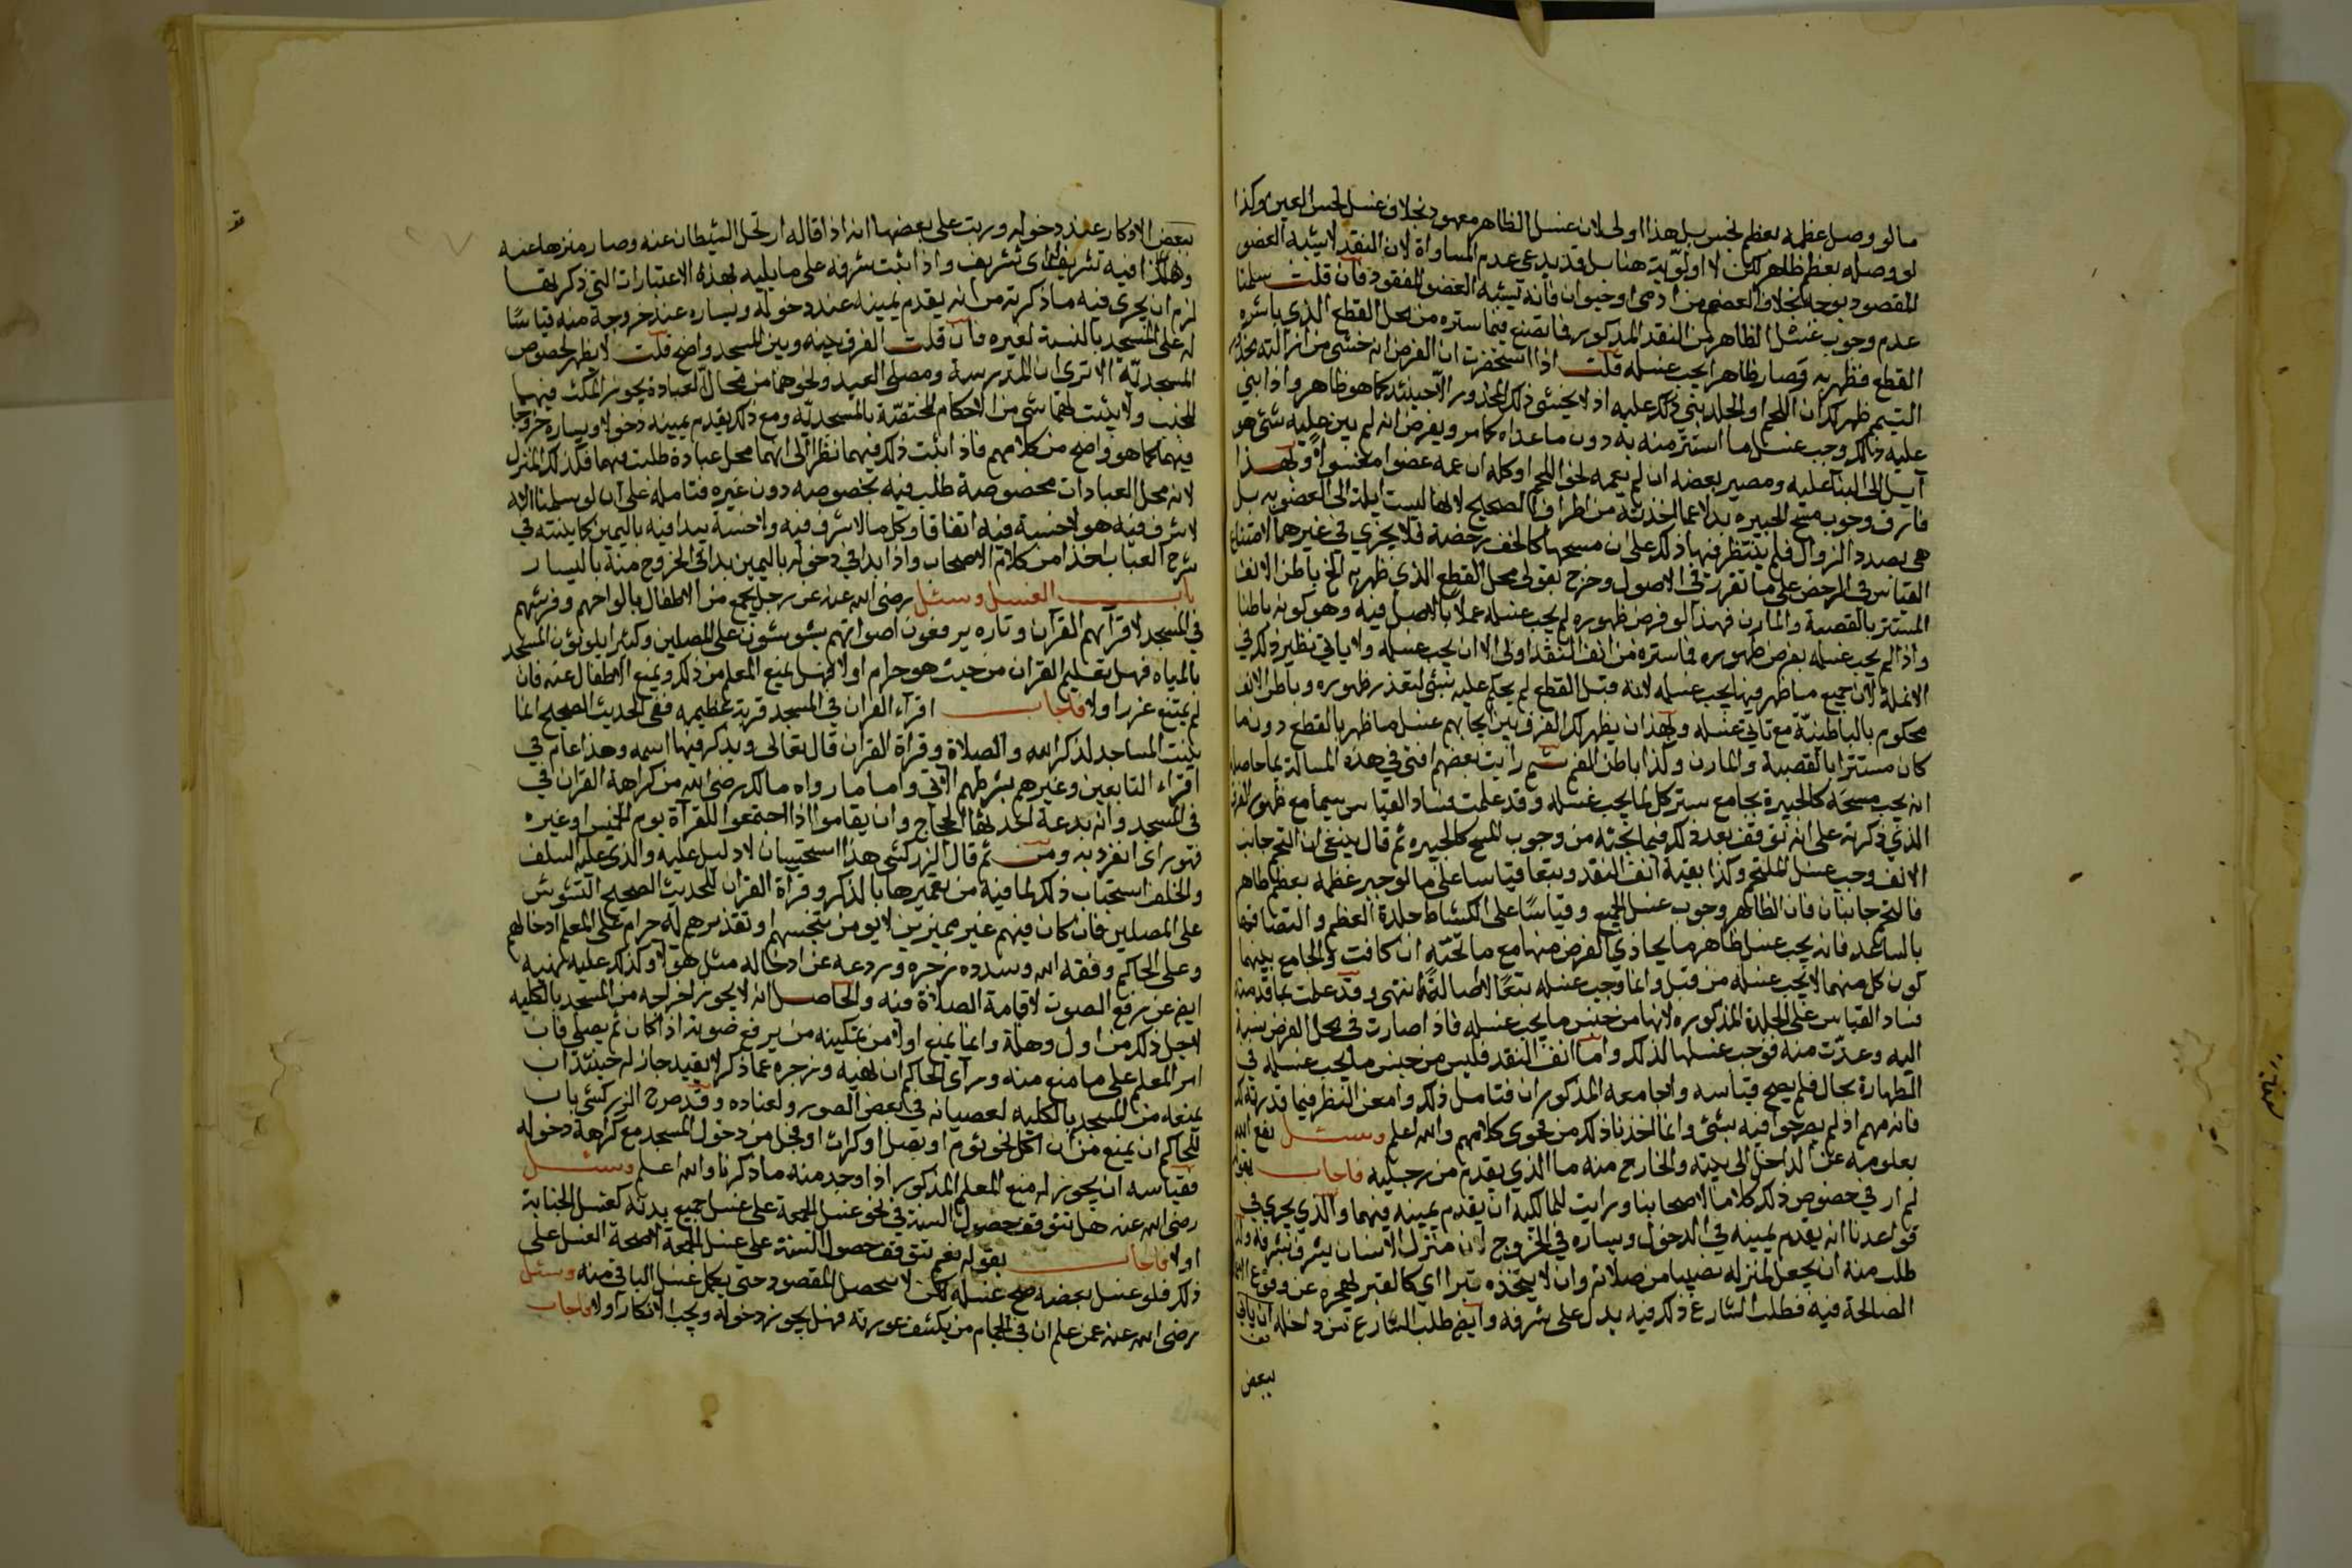 ما لو وصل عظمه بعظم نجس بل هذا اولى لان غسل الظاهر معهود بخلاف غسل نجس العين وكذا
لو وصله بعظم طاهر لكن لا اولوية هنا بل قد يدعى عدم المساواة لان النقد لا يشبه العضو
المقصود بوجه بخلاف العظم من ادمي او حيوان فانه يشبه العضو المفقود فان قلت سلمنا
عدم وجوب غسل الظاهر من النقد المذكور فما تصنع فيما ستره من محل القطع الذي باشره
القطع فظهر به وصار ظاهرا يجب غسله قلت اذا استحضرت ان الفرض انه خشي من ازالته محذور
التيمم ظهر لك ان اللحم او الجلد بني ذلك عليه اذ لا يخشى ذلك المحذور الا حينئذ كما هو ظاهر واذا بني
عليه ذلك وجب غسل ما استتر منه به دون ما عداه كما مر ويفرض انه لم يبن عليه شيء هو
آيل الى البنا عليه ومصير بعضه ان لم يعمه لحق اللحم او كله ان عمه عضوا مغسولا وبهذا
فارق وجوب مسح الجبيرة بدلا عما اخذته من اطراف الصحيح لانها ليست ايلة الى العضوية بل
هي بصدد الزوال فلم ينتظر فيها ذلك على ان مسحها كالخف رخصة فلا يجزي في غيرهما لامتناع
القياس في الرخص على ما تقرر في الاصول وخرج بقولي محل القطع الذي ظهر به الخ باطن الانف
المستتر بالقصبة والمارن فهذا لو فرض ظهوره لم يجب غسله عملا بالاصل فيه وهو كونه باطنا
واذا لم يجب غسله بفرض ظهوره فما ستره من انف النقد اولى الا ان يجب غسله ولا ياتي نظير ذلك في
الانملة لان جميع ما ظهر فيها يجب غسله لانه قبل القطع لم يحكم عليه بشئ لتعذر ظهوره وباطن الانف
محكوم بالباطنية مع تاتي غسله وبهذا ان يظهر لك الفرق بين ايجابهم غسل ما ظهر بالقطع دون ما
كان مستترا بالقصبة والمارن وكذا باطن الفم ثم رايت بعضهم افتى في هذه المسالة بما حاصله
انه يجب مسحه كالجبيرة بجامع ستر كل لما يجب غسله وقد علمت فساد القياس سيما مع ظهور الفرق
الذي ذكرته على انه توقف بعد ذلك فيما بحثه من وجوب المسح كالجبيرة ثم قال ينبغي ان التحم جانب
الانف وجب غسل الملتحم وكذا بقية انف النقد وبتعا قياسا على ما لو جبر عظمه بعظم طاهر
فالتحم جانبان فان الظاهر وجوب غسل الجميع وقياسا على انكشاط جلدة العظم والتصاقها
بالساعد فانه يجب غسل ظاهر ما يحاذي الفرض منها مع ما تحته ان كانت والجامع بينهما
كون كل منهما لا يجب غسله من قبل وانما وجب غسله تبعا لا اصالة انتهى وقد علمت مما قدمته
فساد القياس على الجلدة المذكورة لانها من جنس ما يجب غسله فاذا صارت في محل الفرض نسبة
اليه وعدت منه فوجب غسلها لذلك واما انف النقد فليس من جنس ما يجب غسله في
الطهارة بحال فلم يصح قياسه والجامعه المذكوران فتامل ذلك وامعن النظر فيما قدرته لك
فانه مهم اذ لم يصرحوا فيه بشئ وانما اخذنا ذلك من فحوى كلامهم والله اعلم وسئل نفع الله
بعلومه عن الداخل الى بيته والخارج منه ما الذي يقدم من رجليه فاجاب بقوله
لم ار في خصوص ذلك كلاما لاصحابنا ورايت للمالكية ان يقدم يمينه فيهما والذي يجري في
قواعدنا انه يقدم يمينه في الدخول ويساره في الخروج لان منزل الانسان يشرف بشرفه ولذا
طلب منه ان يجعل لمنزله نصيبا من صلاته وان لا يتخذه قبرا اي كالقبر لهجره عن وقوع
الصالحة فيه فطلب الشارع ذلك فيه يدل على شرفه وايضا طلب الشارع من داخله ان ياتي
ببعض
ببعض الاذكار عند دخوله ورتب على بعضها انه اذا قاله ارتحل الشيطان عنه وصار منزها عنه
وهذا فيه تشريف له اي تشريف واذا ثبت شرفه على ما يليه بهذه الاعتبارات التي ذكرتها
لزم ان يجري فيه ما ذكرته من انه يقدم يمينه عند دخوله ويساره عند خروجه منه قياسا
له على المسجد بالنسبة لغيره فان قلت الفرق بينه وبين المسجد واضح قلت لا يظهر لخصوص
المسجدية الا ترى ان المدرسة ومصلى العيد ونحوهما من محال العبادة يجوز المكث فيهما
للجنب ولا يثبت لهما شي من الاحكام المختصة بالمسجدية ومع ذلك يقدم يمينه دخولا ويساره خروجا
فيهما كما هو واضح من كلامهم فاذا ثبت ذلك فيهما نظرا الى انهما محل عبادة طلبت فيهما فكذلك المنزل
لانه محل العبادات مخصوصة طلب فيه بخصوصه دون غيره فتامله على ان لو سلمنا انه
لا شرف فيه هو لا خسة فيه اتفاقا وكل ما لا شرف فيه ولا خسة يبدا فيه باليمين كما بينته في
شرح العباب اخذا من كلام الاصحاب واذا بدا في دخوله باليمين بدا في الخروج منه باليسار
باب الغسل وسئل رضي الله عنه عن رجل يجمع من الاطفال بالواحهم وفرشهم
في المسجد لاقرائهم القران وتارة يرفعون اصواتهم يشوشون على المصلين وكثيرا يلوثون المسجد
بالمياه فهل تعليم القران من حيث هو حرام اولا فهل يمنع المعلم من ذلك ويمنع الاطفال عنه فان
لم يمتنع عزر اولا فاجاب اقراء القران في المسجد قربة عظيمة ففي الحديث الصحيح انما
بنيت المساجد لذكر الله والصلاة وقراة القران قال تعالى ويذكر فيها اسمه وهذا عام في
اقراء التابعين وغيرهم بشرطهم الاتي واما ما رواه مالك رضي الله من كراهة القران في
في المسجد وانه بدعة احدثها الحجاج وان يقاموا اذا اجتمعوا للقراة يوم الخميس او غيره
فهو راي انفرد به ومن ثم قال الزركشي هذا استحسان لا دليل عليه والذي عليه السلف
والخلف استحباب ذلك لما فيه من تعميرها بالذكر وقراة القران للحديث الصحيح التشويش
على المصلين فان كان فيهم غير مميزين لا يومن تنجيسهم او تقذيرهم له حرام على المعلم ادخالهم
وعلى الحاكم وفقه الله وسدده زجره وردعه عن ادخاله مثل هولا وكذلك عليه نهيه
ايضا عن رفع الصوت لاقامة الصلاة فيه والحاصل انه لا يجوز اخراجه من المسجد بالكليه
لاجل ذلك من اول وهلة وانما يمنع اولا من تمكينه من يرفع صوته اذا كان ثم يصلي فان
اسر المعلم على ما منع منه وراى الحاكم ان نهيه وزجره عما ذكر لا يفيد جاز له حينئذ ان
يمنعه من المسجد بالكليه لعصيانه في بعض الصور ولعناده وقد صرح الزركشي بان
للحاكم ان يمنع من اكل نحو ثوم او بصل او كراث او فجل من دخول المسجد مع كراهة دخوله
فقياسه ان يجوز له منع المعلم المذكور اذا وجد منه ما ذكرنا والله اعلم وسئل
رضي الله عنه هل تتوقف حصول السنة في نحو غسل الجمعة على غسل جميع بدنه كغسل الجنابة
اولا فاجاب بقوله نعم تتوقف حصول السنة على غسل الجمعة لا صحة الغسل على
ذلك فلو غسل بعضه صح غسله لكن لا يحصل المقصود حتى يكمل غسل الباقي منه وسئل
رضي الله عنه عمن علم ان في الحمام من يكشف عورته فهل يجوز دخوله ويجب الانكار اولا فاجاب